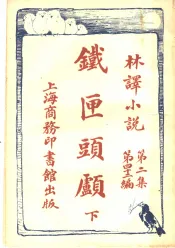 林譯小説
第二集
第三編
鐵匣頭顱
下
上海商務印書館出版